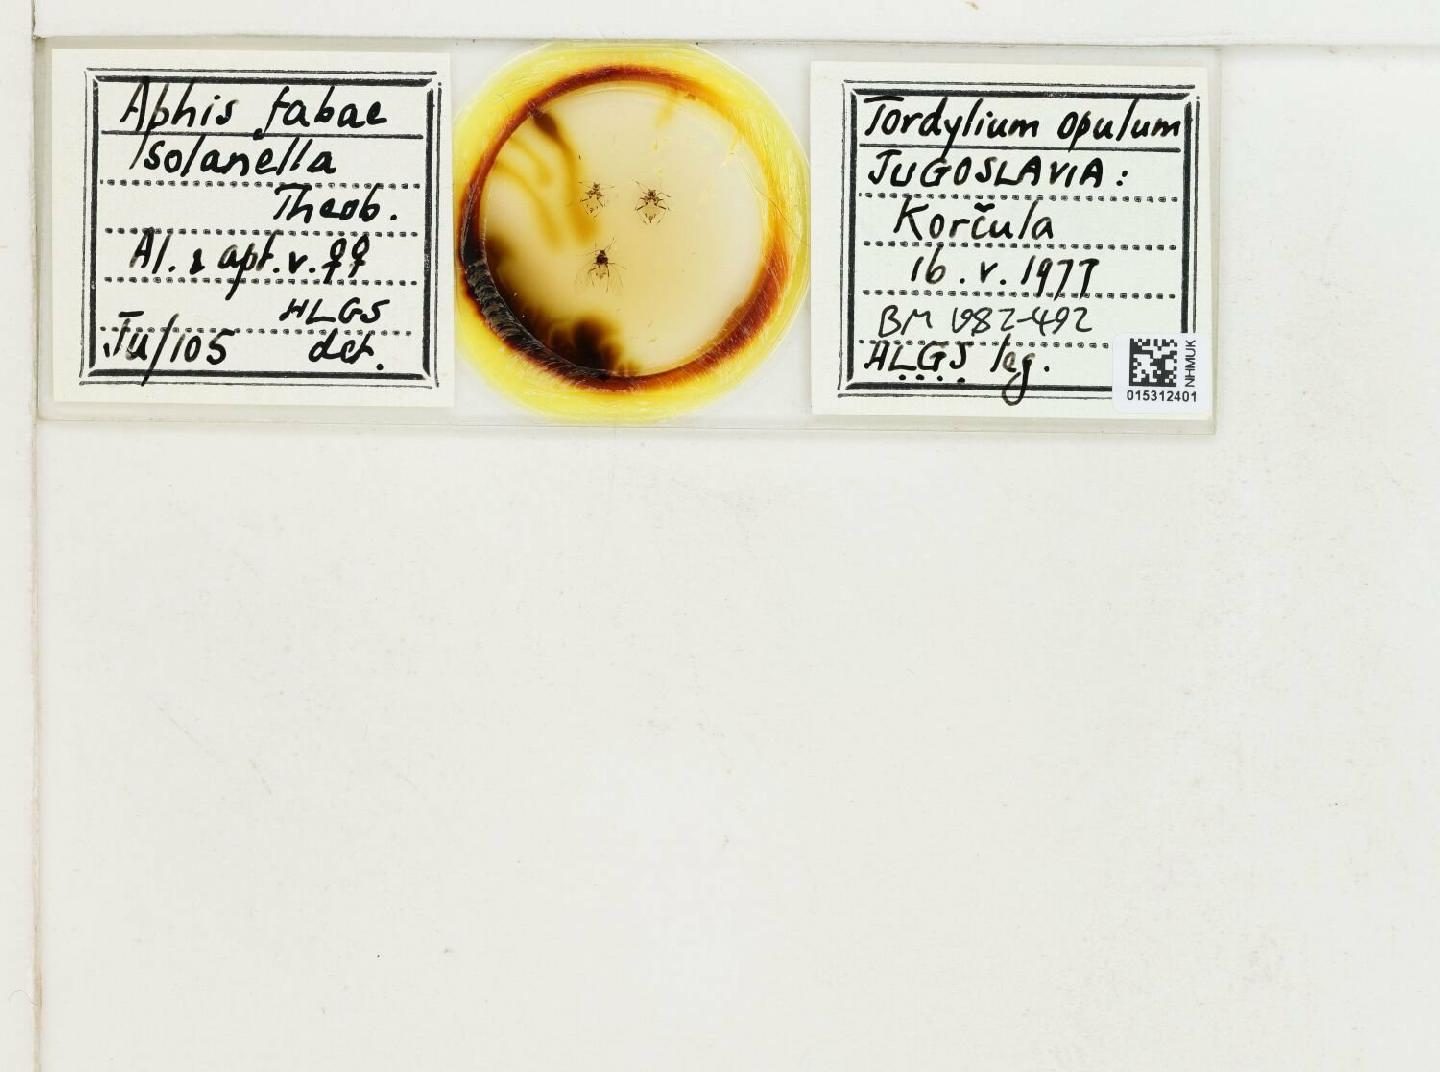 Aphis fabae
solanella
Theob.
Al. & apt. v. ♀♀
HLGS
Ju/105 det.
Tordylium opulum
JUGOSLAVIA:
Korčula
16.v.1977
BM 1982-492
HLGS leg.
NHMUK
015312401